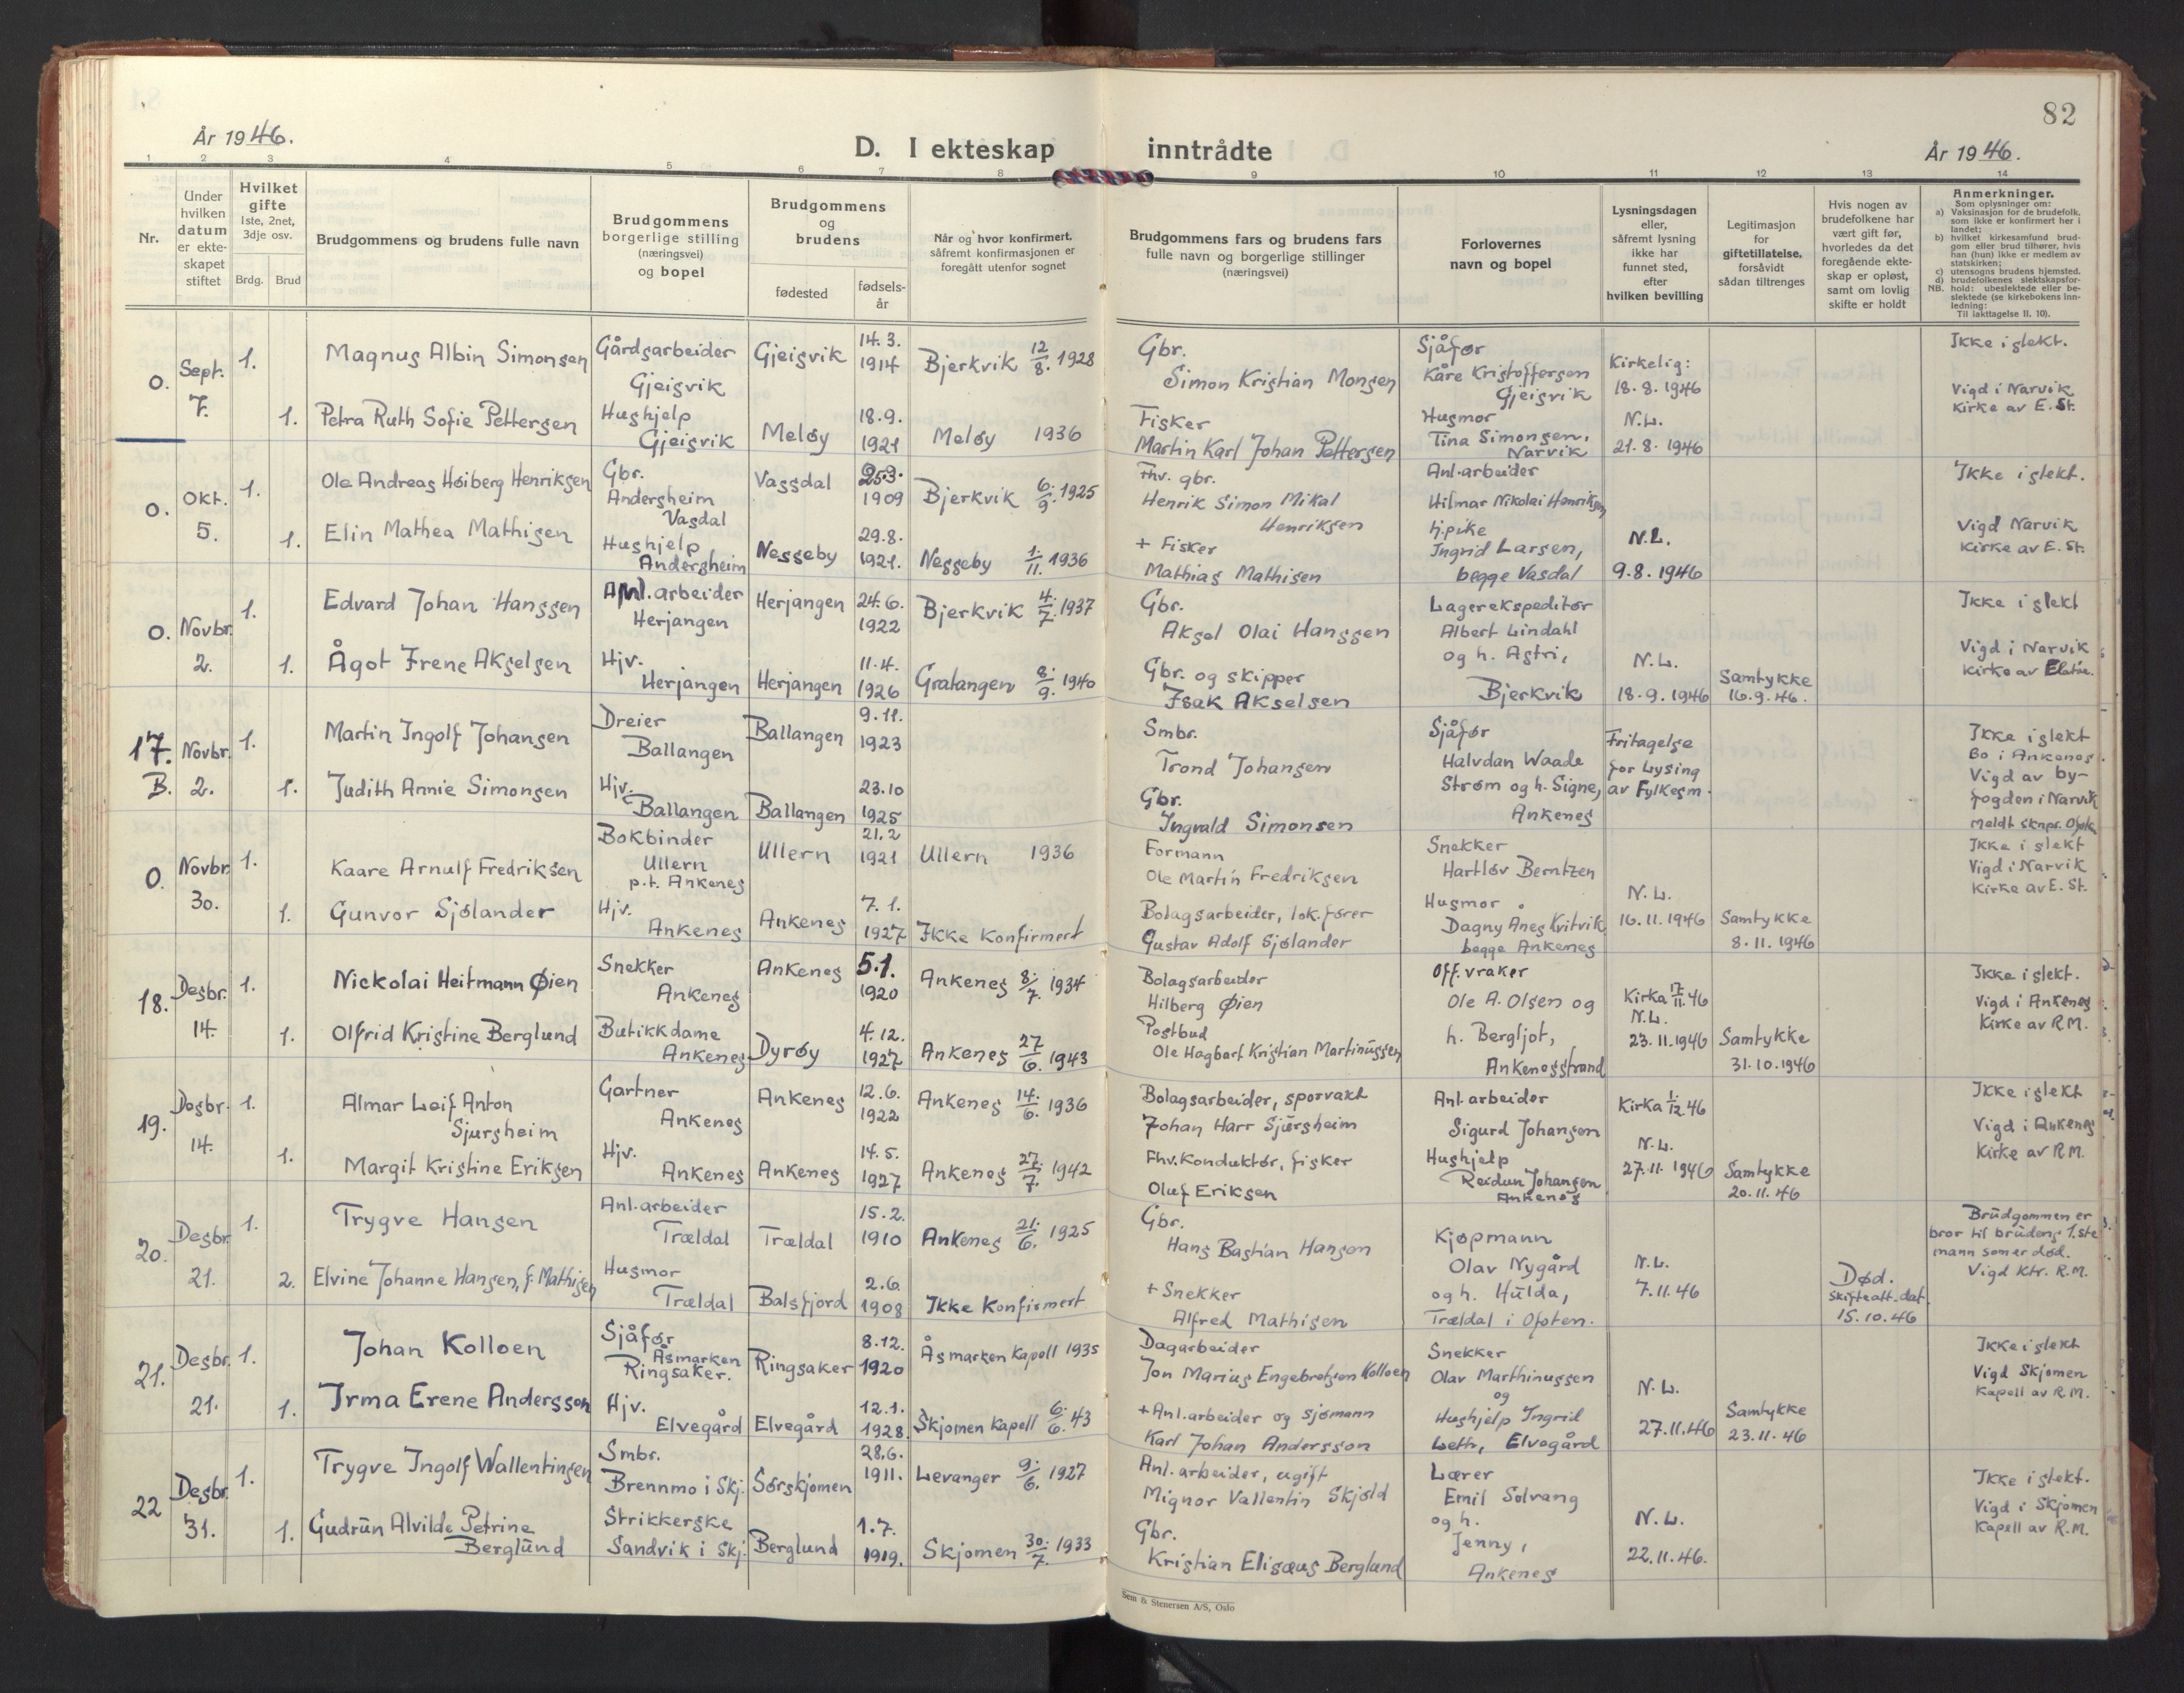 82
År 1946.
D. I ekteskap inntrådte
År 1946.
1 2 3 4 5 6 7 8 9 10 11 12 13 14
Nr.
Under hvilken datum er ekteskapet stiftet
Hvilket gifte
1ste, 2net, 3dje osv.
Brdg. Brud
Brudgommens og brudens fulle navn
Brudgommens borgerlige stilling (næringsvei) og bopel
Brudgommens og brudens
fødested
fødselsår
Når og hvor konfirmert, såfremt konfirmasjonen er foregått utenfor sognet
Brudgommens fars og brudens fars fulle navn og borgerlige stillinger (næringsvei)
Forlovernes navn og bopel
Lysningsdagen eller, såfremt lysning ikke har funnet sted, efter hvilken bevilling
Legitimasjon for giftetillatelse, forsåvidt sådan tiltrenges
Hvis nogen av brudefolkene har vært gift før, hvorledes da det foregående ekteskap er opløst, samt om lovlig skifte er holdt
Anmerkninger.
Som oplysninger om:
a) Vaksinasjon for de brudefolk, som ikke er konfirmert her i landet;
b) hvilket kirkesamfund brudgom eller brud tilhører, hvis han (hun) ikke er medlem av statskirken;
c) utensogns brudens hjemsted.
d) brudefolkenes slektskapsforhold: ubeslektede eller beslektede (se kirkebokens Innledning:
NB.
Til iakttagelse II. 10).
0. Sept. 7. 1. Magnus Albin Simonsen Gårdsarbeider Gjeisvik Gjeisvik 14.3. 1914 Bjerkvik 12/8. 1928 Gbr. Simon Kristian Monsen Sjåfør Kåre Kristoffersen Gjeisvik Kirkelig: 18.8.1946 Ikke i slekt.
1. Petra Ruth Sofie Pettersen Hushjelp Gjeisvik Meløy 18.9. 1921 Meløy 1936 Fisker Martin Karl Johan Pettersen Husmor Tina Simonsen, Narvik N.L. 21.8.1946 Vigd i Narvik Kirke av E. St.
0. Okt. 5. 1. Ole Andreas Høiberg Henriksen Gbr. Andersheim Vasdal Vassdal 25.9. 1909 Bjerkvik 6/9. 1925 Fhv. gbr. Henrik Simon Mikal Henriksen Anl.arbeider Hilmar Nikolai Henriksen Ikke i slekt.
1. Elin Mathea Mathisen Hushjelp Andersheim Nesseby 29.8. 1921. Nesseby 1./11. 1936 + Fisker Mathias Mathisen hj.pike Ingrid Larsen, begge Vasdal N.L. 9.8.1946 Vigd Narvik Kirke av E. St.
0. Novbr. 2. 1. Edvard Johan Hanssen Anl.arbeider Herjangen Herjangen 24.6. 1922 Bjerkvik 4./7. 1937 Gbr. Aksel Olai Hanssen Lagerekspeditør Albert Lindahl Ikke i slekt
1. Ågot Irene Akselsen Hjv. Herjangen Herjangen 11.4. 1926 Gratangen 8./9. 1940 Gbr. og skipper Isak Akselsen og h. Astri, Bjerkvik N.L. 18.9.1946 Samtykke 16.9.46. Vigd i Narvik Kirke av
17. B. Novbr. 2. 1. Martin Ingolf Johansen Dreier Ballangen Ballangen 9.11. 1923 Smbr. Trond Johansen Sjåfør Halvdan Waade Fritagelse for lysing av Fylkesm. Ikke i slekt Bo i Ankenes.
1. Judith Annie Simonsen Hjv. Ballangen Ballangen 23.10 1925 Gbr. Ingvald Simonsen Strøm og h. Signe, Ankenes Vigd av byfogden i Narvik Meldt sknpr.
0. Novbr. 30. 1. Kaare Arnulf Fredriksen Bokbinder Ullern p.t. Ankenes Ullern 21.2 1921 Ullern 1936 Formann Ole Martin Fredriksen Snekker Hartløv Berntzen Ikke i slekt Vigd i Narvik Kirke av E. St.
1. Gunvor Sjølander Hjv. Ankenes Ankenes 7.1. 1927 Ikke Konfirmert Bolagsarbeider, lok.fører Gustav Adolf Sjølander Husmor Dagny Anes Kvitvik begge Ankenes N.L. 16.11.1946 Samtykke 8.11.1946
18. Desbr. 14. 1. Nickolai Heitmann Øien Snekker Ankenes Ankenes 5.1. 1920 Ankenes 8./7. 1934 Bolagsarbeider Hilberg Øien Off. vraker Ole A. Olsen og Kirka 17/11.46 Ikke i slekt.
1. Olfrid Kristine Berglund Butikkdame Ankenes Dyrøy 4.12. 1927 Ankenes 27/6. 1943 Postbud Ole Hagbart Kristian Martinussen h. Bergljot, Ankenesstrand N.L. 23.11.1946 Samtykke 31.10.1946 Vigd i Ankenes Kirke av R.M.
19. Desbr. 14. 1. Almar Leif Anton Sjursheim Gartner Ankenes Ankenes 12.6. 1922 Ankenes 14./6. 1936 Bolagsarbeider, sporvakt Johan Harr Sjursheim Anl.arbeider Sigurd Johansen Kirka 1./12.46 Ikke i slekt
1. Margit Kristine Eriksen Hjv. Ankenes Ankenes 14.5. 1927 Ankenes 27./7. 1942 Fhv. Konduktør, fisker Oluf Eriksen Hushjelp Reidun Johansen Ankenes N.L. 27.11.1946 Samtykke 20.11.46 Vigd i Ankenes Kirke av R.M.
20. Desbr 21. 1. Trygve Hansen Anl.arbeider Trældal Trældal 15.2. 1910 Ankenes 21./6. 1925 Gbr. Hans Bastian Hansen Kjøpmann Olav Nygård Brudgommen er bror til brudens 1.ste mann som er død.
2. Elvine Johanne Hansen, f. Mathisen Husmor Trældal Balsfjord 2.6. 1908 Ikke Konfirmert + Snekker Alfred Mathisen og h. Hulda, Trældal i Ofoten. N.L. 7.11.46 Død. Skifteatt. dat. 15.10.46 Vigd Ktr. R.M.
21. Desbr. 21. 1. Johan Kolloen Sjåfør Åsmarken Ringsaker. Ringsaker 8.12. 1920 Åsmarken Kapell 1935 Dagarbeider Jon Marius Engebretsen Kolloen Snekker Olav Marthinussen og Ikke i slekt
1. Irma Erene Andersson Hjv. Elvegård Elvegård 12.1. 1928. Skjomen Kapell 6./6. 43 + Anl.arbeider og sjømann Karl Johan Andersson Hushjelp Ingrid Leth, Elvegård N.L. 27.11.46 Samtykke 23.11.46 Vigd Skjomen Kapell av R.M.
22 Desbr. 31. 1. Trygve Ingolf Wallentinsen Smbr. Brennmo i Skj. Sørskjomen 28.6. 1911. Levanger 9./6. 1927 Anl.arbeider, ugift Mignor Vallentin Skjold Lærer Emil Solvang Ikke i slekt.
1. Gudrun Alvilde Petrine Berglund Strikkerske Sandvik i Skj. Berglund 1.7. 1919. Skjomen 30./7. 1933 Gbr. Kristian Elisæus Berglund og h. Jenny, Ankenes N.L. 22.11.46. Vigd i Skjomen Kapell av R.M.
Sem & Stenersen A/S, Oslo